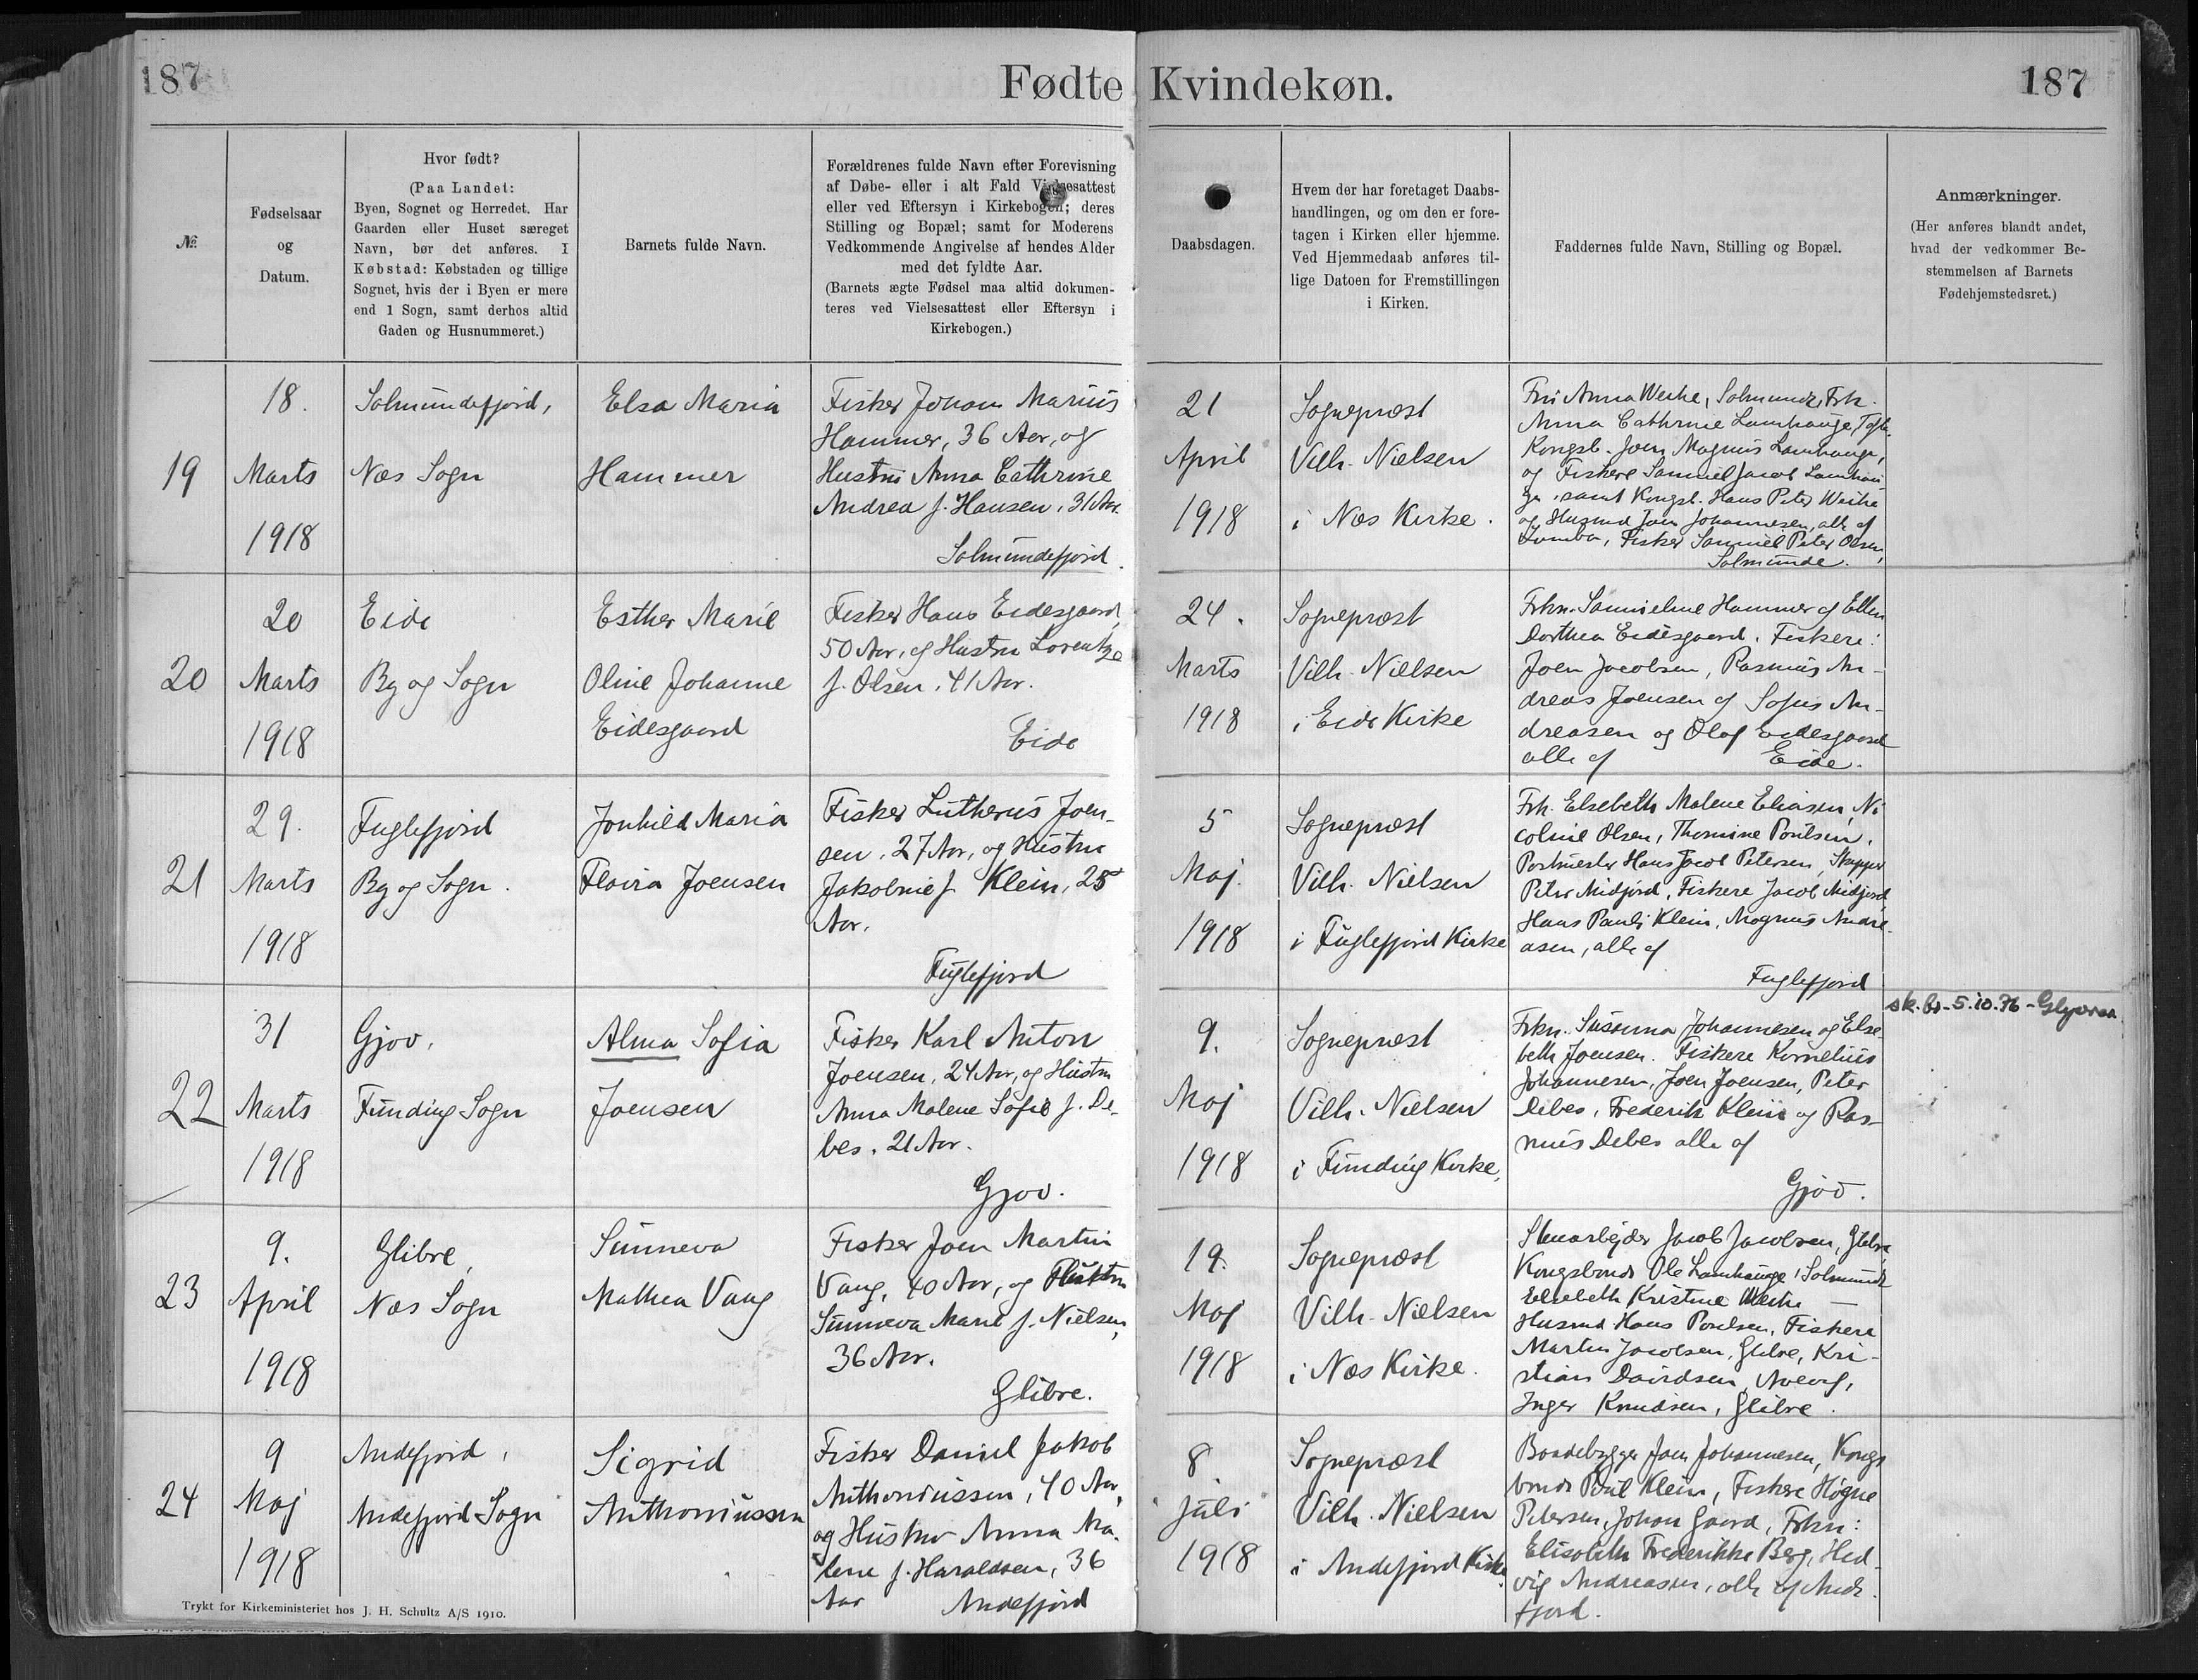 187
Fødte Kvindekøn.
187
№
Fødselsaar
og
Datum.
Hvor født?
(Paa Landet:
Byen, Sognet og Herredet. Har
Gaarden eller Huset særeget
Navn, bør det anføres. I
Købstad: Købstaden og tillige
Sognet, hvis der i Byen er mere
end 1 Sogn, samt derhos altid
Gaden og Husnummeret.)
Barnets fulde Navn.
Forældrenes fulde Navn efter Forevisning
af Døbe- eller i alt Fald Vielsesattest
eller ved Eftersyn i Kirkebogen; deres
Stilling og Bopæl; samt for Moderens
Vedkommende Angivelse af hendes Alder
med det fyldte Aar.
(Barnets ægte Fødsel maa altid dokumen-
teres ved Vielsesattest eller Eftersyn i
Kirkebogen.)
Daabsdagen.
Hvem der har foretaget Daabs-
handlingen, og om den er fore-
tagen i Kirken eller hjemme.
Ved Hjemmedaab anføres til-
lige Datoen for Fremstillingen
i Kirken.
Faddernes fulde Navn, Stilling og Bopæl.
Anmærkninger.
(Her anføres blandt andet,
hvad der vedkommer Be-
stemmelsen af Barnets
Fødehjemstedsret.)
19
18.
Marts
1918
Solmundefjord,
Næs Sogn
Elsa Maria
Hammer
Fisker Johan Marius
Hammer, 36 Aar, og
Hustru Anna Cathrine
Andrea f. Hansen, 31 Aar.
Solmundefjord.
21
April
1918
Sognepræst
Vilh. Nielsen
i Næs Kirke.
Anna Cathrine Lamhauge,
Kongsb. Joen Magnus Lamhauge,
og Fiskere Samuel Jacob Lamhau-
ge, samt Kongsb. Hans Peter
og Husmd Joen Johannesen, alle af
Lamba, Fisker Samuel Peter Olsen,
Solmunde.
20
20
Marts
1918
Eide
By og Sogn
Esther Marie
Oline Johanne
Eidesgaard
Fisker Hans Eidesgaard,
50 Aar, og Hustru Lorentze
f. Olsen, 41 Aar.
Eide
24.
Marts
1918
Sognepræst
Vilh. Nielsen
i Eide Kirke
Frkn. Sanneline Hammer og Ellen
Dorthea Eidesgaard. Fiskere:
Joen Jacobsen, Rasmus An-
dreas Joensen og Sofus An-
dreasen og Olaf Eidesgaard
alle af Eide.
21
29.
Marts
1918
Fuglefjord
By og Sogn.
Jonhild Maria
Flovra Joensen
Fisker Lutherus Joen-
sen, 27 Aar, og Hustru
Jakobine f. Klein, 25
Aar.
Fuglefjord
5
Maj.
1918
Sognepræst
Vilh. Nielsen
i Fuglefjord Kirke
Frk. Elsebeth Malene Eliasen, Ni
coline Olsen, Thomine Poulsen,
Postmester Hans Jacob Petersen, Skipper
Peter Midjord, Fiskere Jacob Midjord,
Hans Pauli Klein, Magnus Andre-
asen, alle af
Fuglefjord
22
31
Marts
1918
Gjov,
Funding Sogn
Alma Sofia
Joensen
Fisker Karl Anton
Joensen, 24 Aar, og Hustru
Anna Malene Sofie f. De-
bes. 21 Aar.
Gjov.
9.
Maj
1918
Sognepræst
Vilh. Nielsen
i Funding Kirke.
Frkn. Susanna Johannesen og Else
beth Joensen. Fiskere Kornelius
Johannesen, Joen Joensen, Peter
Debes, Frederik Klein og Ras-
mus Debes alle af
Gjov.
5.10.76 - Glyvraa
23
9.
April
1918
Glibre,
Næs Sogn
Sunneva
Mathea Vang
Fisker Joen Martin
Vang, 40 Aar, og Hustru
Sunneva Marie f. Nielsen,
36 Aar.
Glibre.
19.
Maj
1918
Sognepræst
Vilh. Nielsen
i Næs Kirke.
Stenarbejder Jacob Jacobsen, Glibre
Kongsbonde Ole Lamhauge, Solmunde
Elsebeth Kristine
Husmd Hans Poulsen, Fiskere
Martin Jacobsen, Glibre, Kri-
stian Davidsen,
Inger Knudsen, Glibre.
24
9
Maj
1918
Andefjord,
Andefjord Sogn
Sigrid
Anthoniussen
Fisker Daniel Jakob
Anthoniussen, 40 Aar,
og Hustru Anna Ma-
lene f. Haraldsen, 36
Aar Andefjord
8
Juli
1918
Sognepræst
Vilh. Nielsen
i Andefjord Kirke.
Baadebygger Joen Johannesen, Kongs
bonde Poul Klein, Fiskere Høgne
Petersen, Johan Gaard, Frkn:
Elisabeth Frederikke Berg, Hed-
vig Andreasen, alle af Ande-
fjord.
Trykt for Kirkeministeriet hos J. H. Schultz A/S 1910.